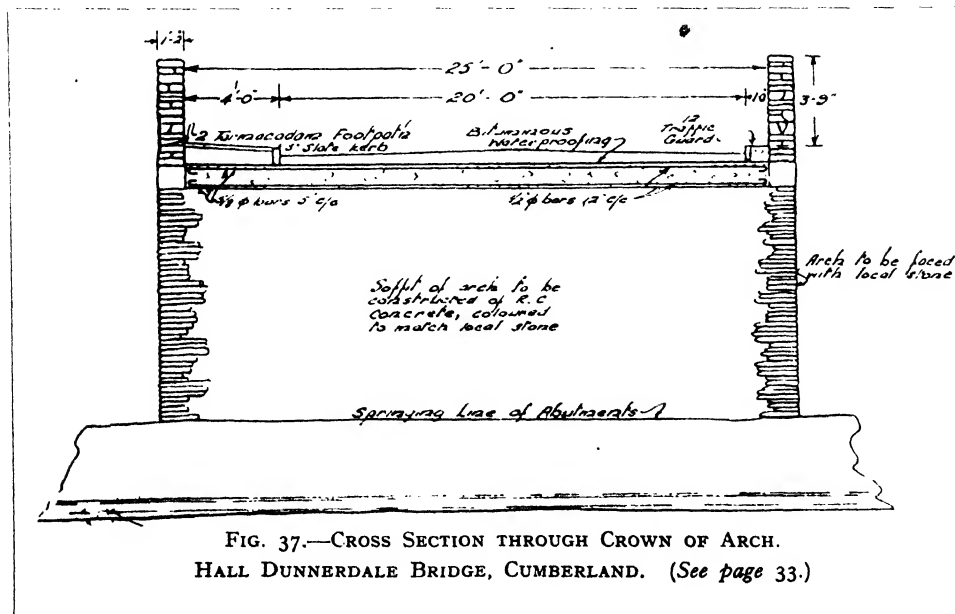 1'-3"
25'-0"
4'-0"
20'-0"
10"
3-9"
2 Tarmacadam Footpath
3" Slate Kerb
Bituminous
Waterproofing
12
Traffic
Guard.
bars 5" c/c
½ φ bars 12" c/c
Arch to be faced
with local stone
Soffit of arch to be
constructed of R.C
concrete, coloured
to match local stone
Springing Line of Abutments
FIG. 37.—CROSS SECTION THROUGH CROWN OF ARCH.
HALL DUNNERDALE BRIDGE, CUMBERLAND. (See page 33.)